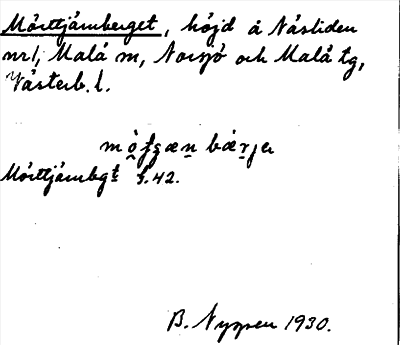 Mörttjärnberget, höjd å Näsliden
nr1, Malå m, Norsjö och Malå tg,
Västerb. l.
Mörttjärnbgt f.42.
B. Nyman 1930.